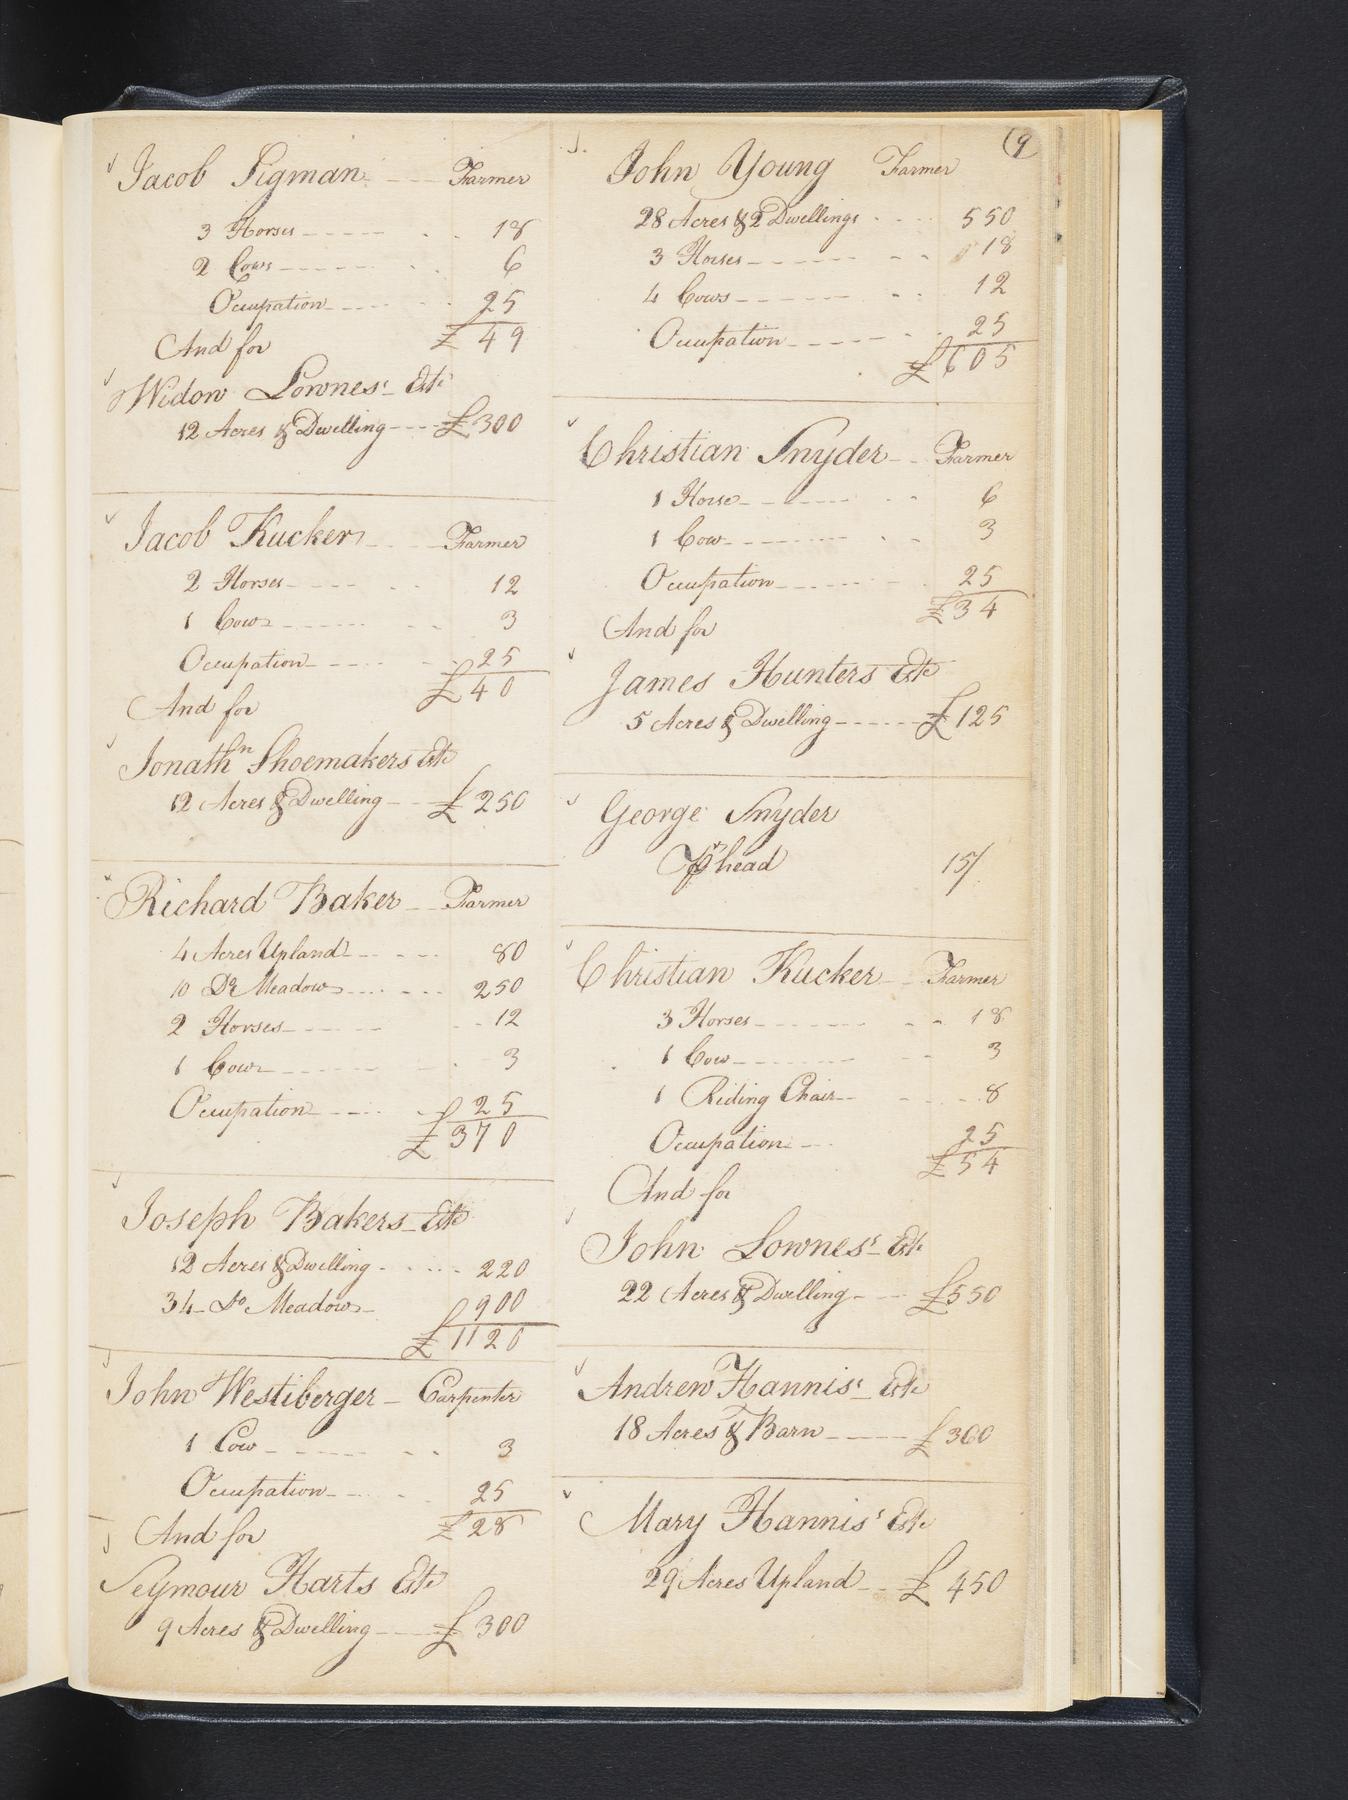 (9
Jacob Sigman Farmer
3 Horses 18
2 Cows 6
Occupation 25
£ 49
And for
Widow Lownes' Este
12 Acres & Dwelling £300
Jacob Kucker Farmer
2 Horses 12
1 Cow 3
Occupation 25
£ 40
And for
Jonathn Shoemakers Este
12 Acres & Dwelling £ 250
Richard Baker Farmer
4 Acres Upland 80
10 Do Meadow 250
2 Horses 12
1 Cow 3
Occupation 25
£ 370
Joseph Bakers Este
12 Acres & Dwelling 220
34 Do Meadow 900
£ 1120
John Westiberger Carpenter
1 Cow 3
Occupation 25
£ 28
And for
Seymour Harts Este
9 Acres & Dwelling £ 300
John Young Farmer
28 Acres & 2 Dwellings 550
3 Horses 18
4 Cows 12
Occupation 25
£605
Christian Snyder Farmer
1 Horse 6
1 Cow 3
Occupation 25
£34
And for
James Hunters Este
5 Acres & Dwelling £125
George Snyder
Pr head 15/
Christian Kucker Farmer
3 Horses 18
1 Cow 3
1 Riding Chair 8
Occupation 25
£54
And for
John Lownes' Este
22 Acres & Dwelling £550
Andrew Hannis' Este
18 Acres & Barn £360
Mary Hannis' Este
29 Acres Upland £ 450